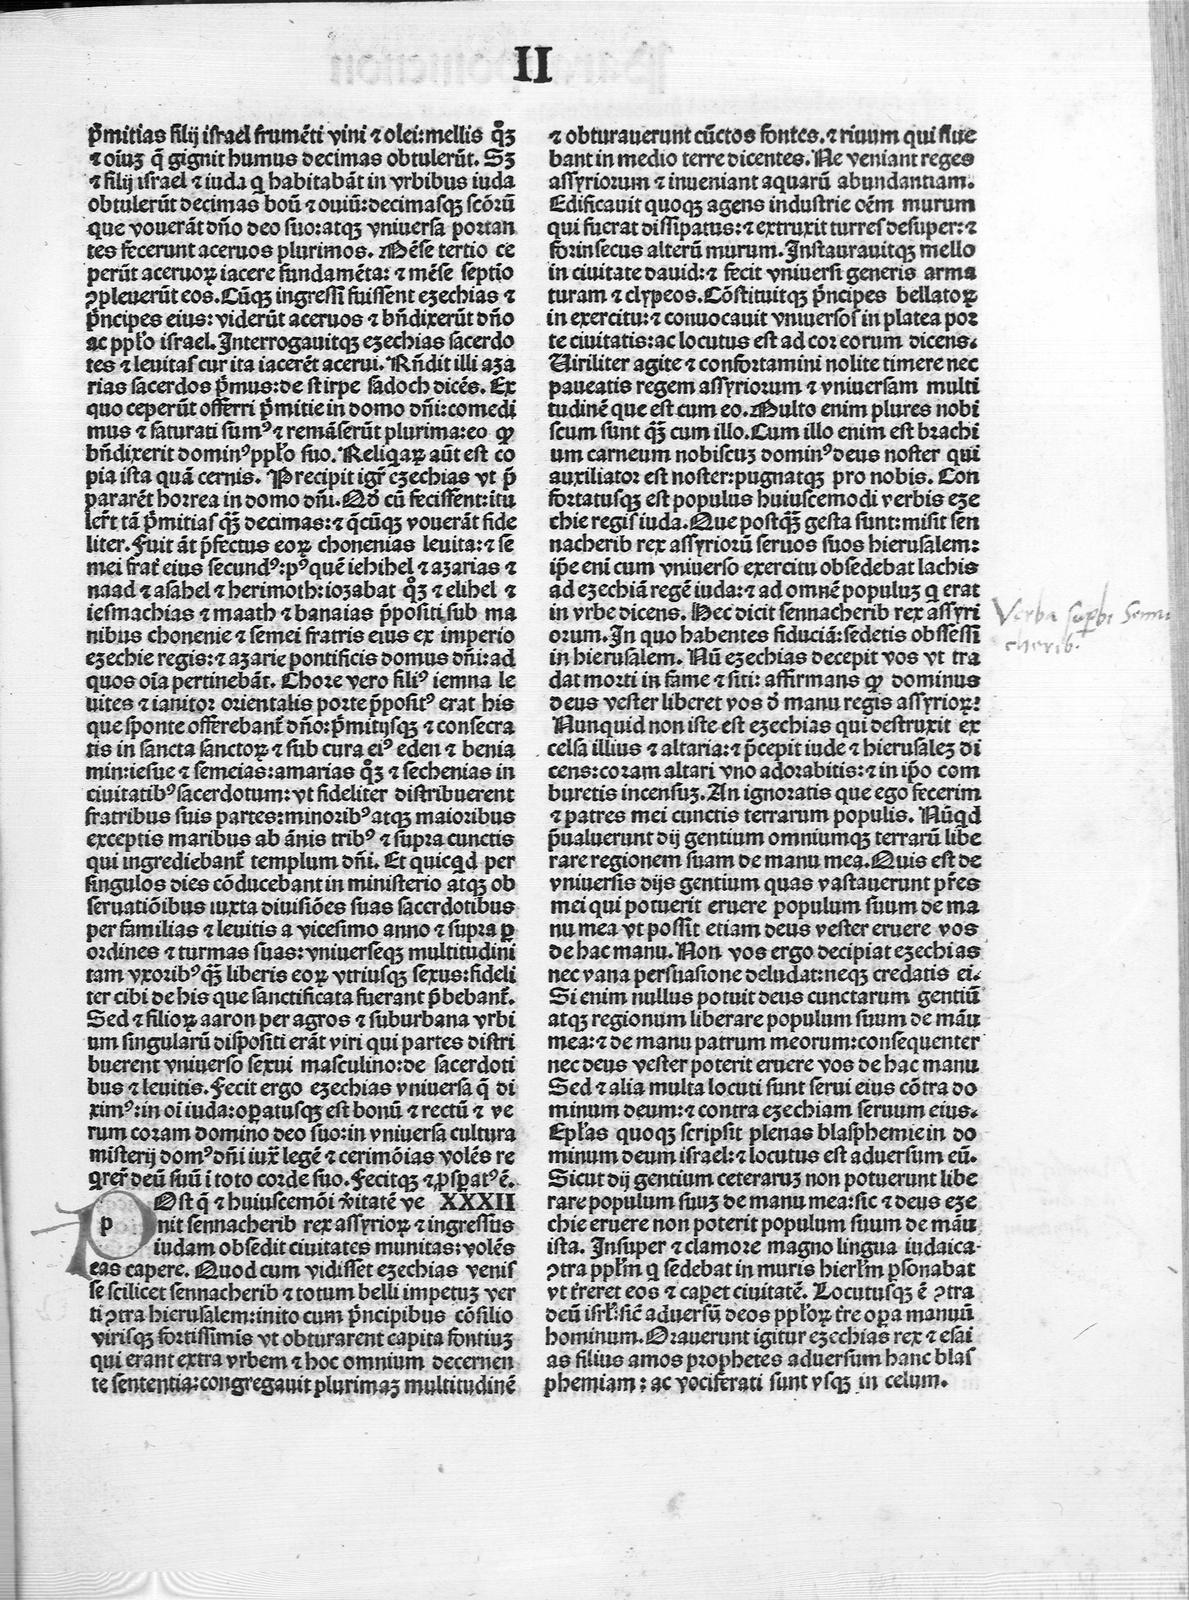 II
p̄mitias filij israel frumēti vini ⁊ olei:mellis q̊ꝫ
⁊ oīuꝫ q̄ gignit humus decimas obtulerūt. Sꝫ
⁊ filij israel ⁊ iuda q habitabāt in vrbibus iuda
obtulerūt decimas boū ⁊ ouiū:decimasqꝫ scōrū
que vouerāt dño deo suo:atqꝫ vniuersa portan
tes fecerunt aceruos plurimos. Mēse tertio ce
perūt aceruoꝝ iacere fundamēta: ⁊ mēse septīo
ꝯpleuerūt eos. Cūqꝫ ingressi fuissent ezechias ⁊
p̄ncipes eius: viderūt aceruos ⁊ bñdixerūt dño
ac pplo israel. Interrogauitqꝫ ezechias sacerdo
tes ⁊ leuitas cur ita iacerēt acerui. Rñdit illi aza
rias sacerdos p̄mus:de stirpe sadoch dicēs. Ex
quo ceperūt offerri p̄mitie in domo dñi:comedi
mus ⁊ saturati sumꝰ ⁊ remāserūt plurima:eo ꝙ
bñdixerit dominꝰ pplo suo. Reliqaꝝ aūt est co
pia ista quā cernis. Precipit igr̄ ezechias vt p̄
pararēt horrea in domo dñi. Qd̄ cū fecissent:itu
ler̄t tā p̄mitias qꝫ̄ decimas:⁊ q̄cūqꝫ vouerāt fide
liter. Fuit āt p̄fectus eoꝝ chonenias leuita:⁊ se
mei frat̄ eius secundꝰ:pꝰ quē iehihel ⁊ azarias ⁊
naad ⁊ asahel ⁊ herimoth:iozabat q̊ꝫ ⁊ elihel ⁊
iesmachias ⁊ maath ⁊ banaias p̄positi sub ma
nibus chonenie ⁊ semei fratris eius ex imperio
ezechie regis:⁊ azarie pontificis domus dñi:ad
quos oīa pertinebāt. Chore vero filiꝰ iemna le
uites ⁊ ianitor orientalis porte p̄positꝰ erat his
que sponte offerebant̄ dño:p̄mitijsqꝫ ⁊ consecra
tis in sancta sanctoꝝ ⁊ sub cura eiꝰ eden ⁊ benia
min:iesue ⁊ semeias:amarias q̊ꝫ ⁊ sechenias in
ciuitatibꝰ sacerdotum: vt fideliter distribuerent
fratribus suis partes:minoribꝰ atqꝫ maioribus
exceptis maribus ab ānis tribꝰ ⁊ supra cunctis
qui ingrediebant̄ templum dñi. Et quicqd per
singulos dies cōducebant in ministerio atqꝫ ob
seruatiōibus iuxta diuisiōes suas sacerdotibus
per familias ⁊ leuitis a vicesimo anno ⁊ supra ꝑ
ordines ⁊ turmas suas: vniuerseqꝫ multitudini
tam vxoribꝰ qꝫ̄ liberis eoꝝ vtriusqꝫ sexus:fideli
ter cibi de his que sanctificata fuerant p̄bebant̄.
Sed ⁊ filioꝝ aaron per agros ⁊ suburbana vrbi
um singularū dispositi erāt viri qui partes distri
buerent vniuerso sexui masculino:de sacerdoti
bus ⁊ leuitis. Fecit ergo ezechias vniuersa q̄ di
ximꝰ:in oi iuda:opatusqꝫ est bonū ⁊ rectū ⁊ ve
rum coram domino deo suo:in vniuersa cultura
misterij domꝰ dñi iux̄ legē ⁊ cerimōias volēs re
qrer̄ deū suū ī toto corde suo. Fecitqꝫ ⁊ ꝓspatꝰ ē.
POst q̄ ⁊ huiuscemōi v̄itatē ve XXXII
nit sennacherib rex assyrioꝝ ⁊ ingressus
iudam obsedit ciuitates munitas: volēs
eas capere. Quod cum vidisset ezechias venis
se scilicet sennacherib ⁊ totum belli impetuꝫ ver
ti ꝯtra hierusalem:inito cum p̄ncipibus cōsilio
virisqꝫ fortissimis vt obturarent capita fontiuꝫ
qui erant extra vrbem ⁊ hoc omnium decernen
te sententia:congregauit plurimaꝫ multitudinē
⁊ obturauerunt cūctos fontes.⁊ riuum qui flue
bant in medio terre dicentes. Ne veniant reges
assyriorum ⁊ inueniant aquarū abundantiam.
Edificauit quoqꝫ agens industrie oēm murum
qui fuerat dissipatus:⁊ extruxit turres desuper:⁊
forinsecus alterū murum. Instaurauitqꝫ mello
in ciuitate dauid:⁊ fecit vniuersi generis arma
turam ⁊ clypeos. Cōstituitqꝫ p̄ncipes bellatoꝝ
in exercitu:⁊ conuocauit vniuersos in platea por
te ciuitatis:ac locutus est ad cor eorum dicens.
Uiriliter agite ⁊ confortamini nolite timere nec
paueatis regem assyriorum ⁊ vniuersam multi
tudinē que est cum eo. Multo enim plures nobi
scum sunt qꝫ̄ cum illo. Cum illo enim est brachi
um carneum nobiscuꝫ dominꝰ deus noster qui
auxiliator est noster:pugnatqꝫ pro nobis. Con
fortatusqꝫ est populus huiuscemodi verbis eze
chie regis iuda. Que postqꝫ̄ gesta sunt:misit sen
nacherib rex assyriorū seruos suos hierusalem:
ip̄e eni cum vniuerso exercitu obsedebat lachis
ad ezechiā regē iuda:⁊ ad omnē populuꝫ q erat
in vrbe dicens. Hec dicit sennacherib rex assyri
orum. In quo habentes fiduciā:sedetis obsessi
in hierusalem. Nū ezechias decepit vos vt tra
dat morti in fame ⁊ siti: affirmans ꝙ dominus
deus vester liberet vos d̄ manu regis assyrioꝝ?
Nunquid non iste est ezechias qui destruxit ex
celsa illius ⁊ altaria:⁊ p̄cepit iude ⁊ hierusaleꝫ di
cens:coram altari vno adorabitis:⁊ in ip̄o com
buretis incensuꝫ. An ignoratis que ego fecerim
⁊ patres mei cunctis terrarum populis. Nūqd
p̄ualuerunt dij gentium omniumqꝫ terrarū libe
rare regionem suam de manu mea. Quis est de
vniuersis dijs gentium quas vastauerunt pr̄es
mei qui potuerit eruere populum suum de ma
nu mea vt possit etiam deus vester eruere vos
de hac manu. Non vos ergo decipiat ezechias
nec vana persuasione deludat:neqꝫ credatis ei.
Si enim nullus potuit deus cunctarum gentiū
atqꝫ regionum liberare populum suum de māu
mea:⁊ de manu patrum meorum:consequenter
nec deus vester poterit eruere vos de hac manu
Sed ⁊ alia multa locuti sunt serui eius cōtra do
minum deum:⁊ contra ezechiam seruum eius.
Ep̄las quoqꝫ scripsit plenas blasphemie in do
minum deum israel:⁊ locutus est aduersum eū.
Sicut dij gentium ceteraruꝫ non potuerunt libe
rare populum suuꝫ de manu mea:sic ⁊ deus eze
chie eruere non poterit populum suum de māu
ista. Insuper ⁊ clamore magno lingua iudaica
ꝯtra pplm q sedebat in muris hierl̄m psonabat
vt t̄reret eos ⁊ capet ciuitatē. Locutusqꝫ ē ꝯtra
deū isrl̄:sic̄ aduersū deos pploꝝ t̄re opa manuū
hominum. Orauerunt igitur ezechias rex ⁊ esai
as filius amos prophetes aduersum hanc blas
phemiam: ac vociferati sunt vsqꝫ in celum.
Verba supbi Senna
cherib.